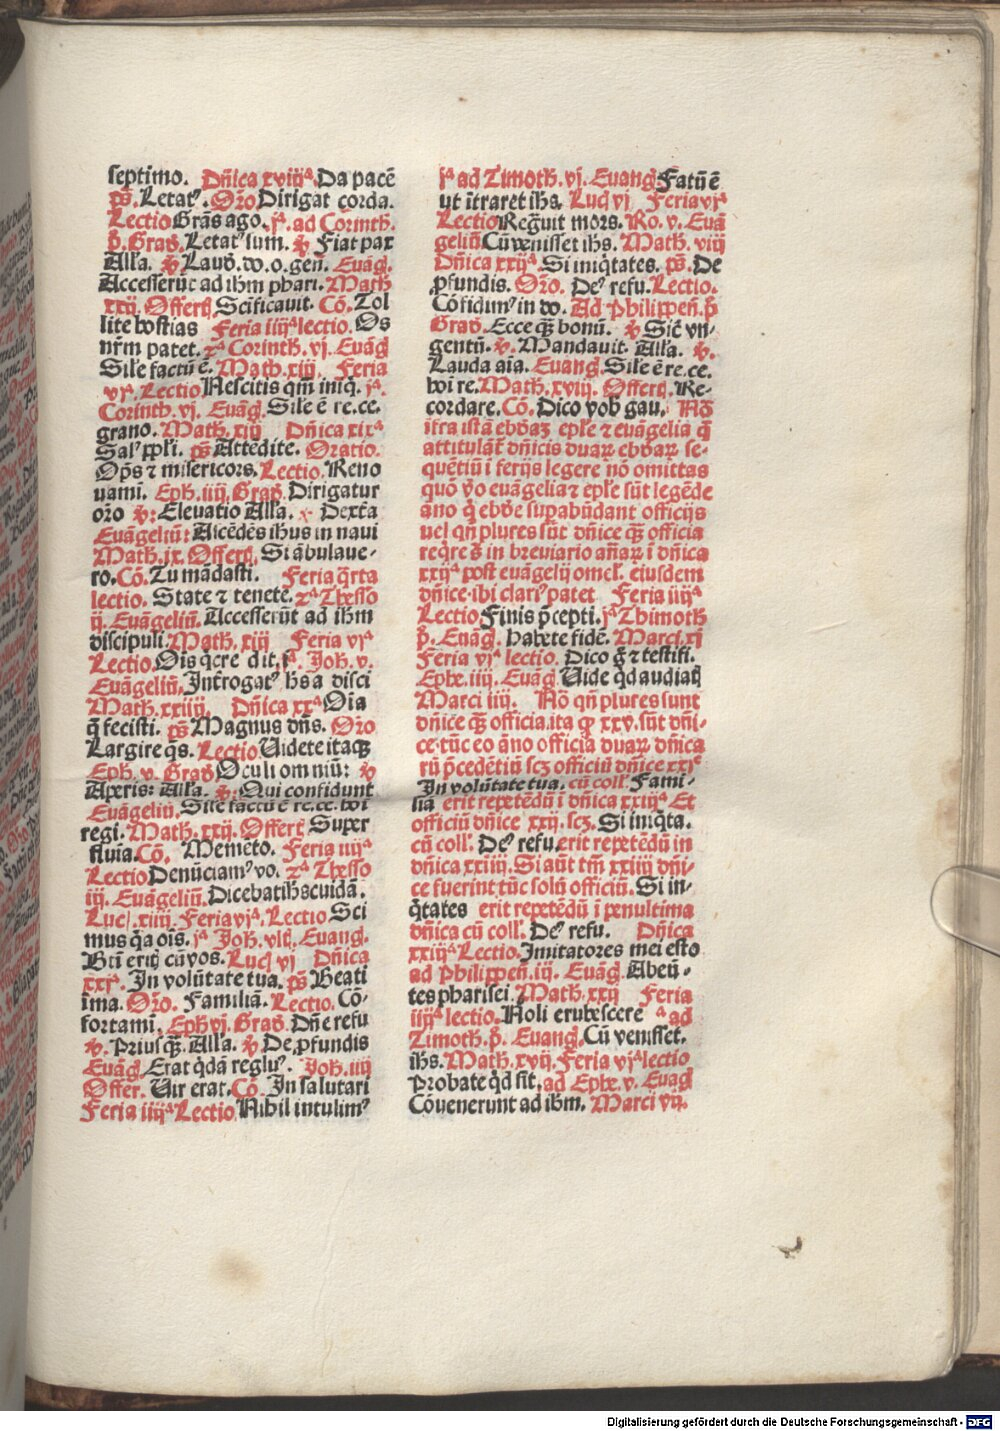 septimo. Dñica xviijᵃ. Da pacē
ps̄. Letatꝰ. Oro Dirigat corda.
Lectio Gras ago. jᵃ. ad Corinth.
p̄. Grad̄. Letatꝰ sum. ꝟ Fiat pax
Alla. ꝟ Laud̄. do. o. gen. Euāg.
Accesserūt ad ihm phari. Math
xxij. Offertꝭ Scificauit. Cō. Tol
lite hostias Feria iiijᵃ lectio. Os
nr̄m patet. 2ᵃ Corinth. vj. Euāg
Sile factū ē. Math. xiij. Feria
vjᵃ. Lectio Nescitis qm̄ iniq̄. jᵃ.
Corinth. vj. Euāg. Sile ē re. ce.
grano. Math. xiij Dñica xixᵃ
Salꝰ ppli. ps̄ Attēdite. Oratio.
Op̄s ⁊ misericors. Lectio. Reno
uami. Eph. iiij. Grad̄. Dirigatur
oro ꝟ: Eleuatio Alla. ꝟ Dextᵃ
Euāgeliū: Ascēdēs ihus in naui
Math. ix. Offertꝭ. Si ābulaue-
ro. Cō. Tu mādasti. Feria q̄rta
lectio. State ⁊ tenete. 2ᵃ Thesso
ij. Euāgeliū. Accesserūt ad ihm
discipuli. Math. xiij Feria vjᵃ
Lectio. Ois q̄ cre dit. jᵃ. Joh. v.
Euāgeliū. Introgatꝰ ihs a disci
Math. xxiiij. Dñica xxᵃ Oīa
q̄ fecisti. ps̄ Magnus dn̄s. Oro
Largire qs̄. Lectio Uidete itaqꝫ
Eph. v. Grad̄ Oculi omniū: ꝟ
Aperis: Alla. ꝟ: Qui confidunt
Euāgeliū. Sile factū ē re. ce. hoi
regi. Math. xxij. Offertꝭ Super
fluia. Cō. Memēto. Feria iiijᵃ
Lectio Denūciamꝰ vo. 2ᵃ Thesso
iij. Euāgeliū. Dicebat ihs cuidā.
Luc. xiiij. Feria vjᵃ. Lectio Sci
mus q̄a ois. jᵃ Joh. vltꝭ. Euang.
Btī eritꝭ cū vos. Lucꝭ vj Dñica
xxjᵃ. In volūtate tua. ps̄ Beati
īma. Oro. Familiā. Lectio. Cō-
fortami. Eph vj. Grad̄. Dn̄e refu
ꝟ. Priusqꝫ. Alla. ꝟ De pfundis
Euāg Erat q̄dā regluˢ. Joh. iiij
Offer. Uir erat. Cō. In salutari
Feria iiijᵃ Lectio. Nihil intulimꝰ
jᵃ ad Timoth. vj. Euang Factū ē
ut ītraret ihs. Lucꝭ vj Feria vjᵃ
Lectio Regnuit mors. Ro. v. Euā
geliū Cū venisset ihs. Math. viij
Dñica xxijᵃ. Si iniq̄tates. ps̄. De
pfundis. Oro. Deꝰ refu. Lectio.
Cōfidimꝰ in do. Ad Philippeñ. p̄
Grad̄. Ecce qꝫ bonū. ꝟ Sic̄ vn-
gentū. ꝟ. Mandauit. Alla. ꝟ.
Lauda aīa. Euang. Sile ē re. ce.
hoi re. Math. xviij. Offertꝭ. Re-
cordare. Cō. Dico vob gau. Nō
īfra istā ebdoaꝫ eple ⁊ euāgelia q̄
attitulāt dn̄icis duaꝝ ebdoaꝝ se-
quētiū ī ferijs legere nō omittas
quō v̄o euāgelia ⁊ eple sūt legēde
ano q̄ ebde supabūdant officijs
uel qn̄ plures sūt dn̄ice qꝫ officia
req̄re s̄ in breuiario an̄aꝝ ī dn̄ica
xxijᵃ post euāgelij omel. eiusdem
dn̄ice. ibi clariꝰ patet Feria iiijᵃ
Lectio Finis p̄cepti. jᵃ Thimoth
p̄. Euāg. Habete fidē. Marci. xi
Feria vjᵃ lectio. Dico g̅ ⁊ testifi.
Ephe. iiij. Euāg. Uide q̄d audiatꝭ
Marci iiij. Nō qn̄ plures sunt
dn̄ice qꝫ officia. ita ꝙ xxv. sūt dn̄i-
ce. tūc eo āno officia duaꝝ dn̄ica
rū p̄cedētiū scꝫ officiū dn̄ice xxjᵉ
In volūtate tua. cū coll. Fami-
liā erit repetēdū ī dn̄ica xxiijᵃ Et
officiū dn̄ice xxij. scꝫ. Si iniq̄ta.
cū coll. Deꝰ refu. erit repetēdū in
dn̄ica xxiiij. Si aūt tm̄ xxiiij dn̄i-
ce fuerint tūc solū officiū. Si in-
q̄tates erit repetēdū ī penultima
dn̄ica cū coll. Deꝰ refu. Dñica
xxiijᵃ Lectio. Imitatores mei esto
ad Philippeñ. iij. Euāg. Abeū-
tes pharisei. Math. xxij Feria
iiijᵃ lectio. Noli erubescere ᵃ ad
Timoth. p̄. Euang. Cū venisset.
ihs. Math. xvij. Feria vjᵃ lectio
Probate q̄d sit. ad Ephe. v. Euāg
Cōuenerunt ad ihm. Marci vij.
Digitalisierung gefördert durch die Deutsche Forschungsgemeinschaft - DFG